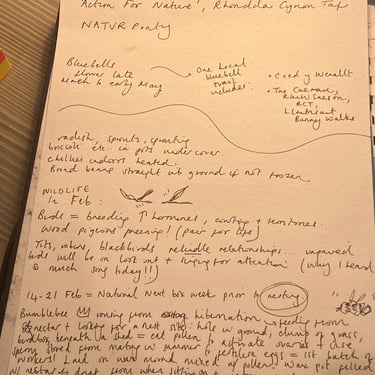 Action For Nature', Rhondda Cynon Taf
NATUR Ponty
Bluebells
flower late
March to early May
One local
bluebell
trail
includes:
• Coed y Wenallt
• The Caerau,
RCT,
Llantrisant
Bunny Walks
radish, sprouts, sprouting
broccoli etc. in pots undercover.
chillies indoors heated.
Broad beans straight into ground if not frozen.
WILDLIFE
In Feb:
Birds = breeding ↑ hormones, courtship + territories.
Wood pigeons preening! (pair for life)
Tits, robins, blackbirds reliable relationships... unpaired
birds will be on look out + singing for attention (why I heard
so much song today!!)
14-21 Feb = National Nest box week prior to nesting
Bumblebee coming from hibernation → feeding from
nectar + looking for a nest site: hole in ground, clumps of grass,
birdbox, beneath la shed = eat pollen to activate ovaries + use
sperm stored from mating in summer to fertilise eggs = 1st batch of
workers! laid on wax mound mixed w/ pollen. Wax pot filled
w/ nectar